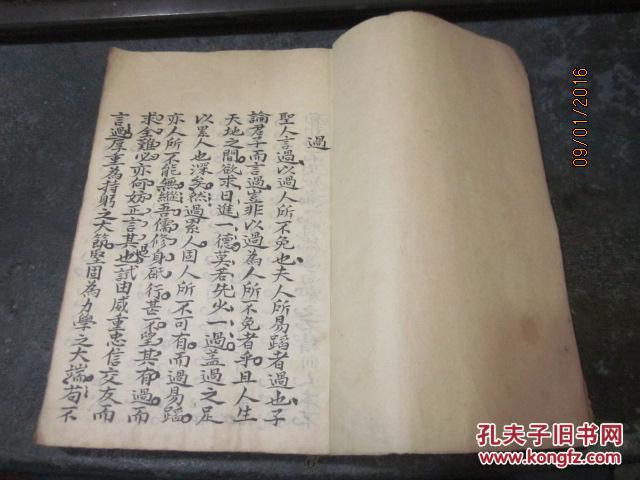 過
聖人言過以過人所不免也夫人所易蹈者過也子
論君子而言過豈非以過為人所不免者乎且人生
天地之間欲求日進一德莫若先少一過蓋過之足
以累人也深矣然過累人固人所不可有而過易蹈
亦人所不能無縱吾儒修身砥行甚不望其有過而
求全難必亦何妨正言其過也試由威重忠信交友而
言過厚重為持躬之大節堅固為力學之大端苟不
09/01/2016
孔夫子旧书网
www.kongfz.com